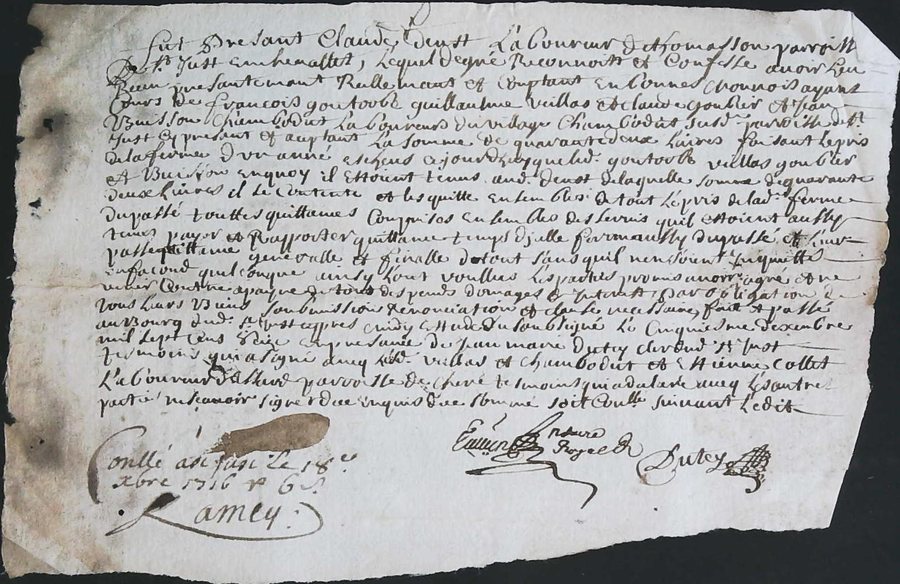 Fut presant Claude deust Laboureur de thomasson parroisse
De St Just En chevallet, Lequel de gré Reconnoit et Confesse avoir Heu
Receu presantemant Reellemant et Comptant en bonnes monnois ayant
Cours de françois goutoobe guillaulme viallas et claude goubier et Jean
Buisson Chambodut Laboureurs du village Chambodut susd. parroisse de St
Just Cy presant et aceptant La somme de quarante deux Livres faisant Le pris
de la ferme D'un anné Escheus ce jourdhuy que led. goutoobe viallas goubier
et Buisson En quoy il Estoient tenus aud. deust de laquelle somme de quarante
deux Livres il se Contente et les quitte Ensembles de tout Le pris de lad. ferme
du passé touttes quittances Comprises Ensembles des servis quil estoient aussy
tenus payer et Rapporter quittance temps d'jelle ferme aussy du passé et
passe quittance generalle et finalle du tout sans quil
en facond quelconque ainsy Lont voullus Les parties promis avoir agré et ne
venir Contre a paine de tous despends domages et Interest par obligation de
tous Leurs Biens soubmission Renonciation et clauses necessaires fait et passé
au Bourg dud. St Just appres midy Estude du soubsigné Le Cinquiesme dexembre
mil sept Cens seize En presance de Jean marie Dutey clerc dud. St Just
tesmoins qui a signé avec Led. viallas et Chambodut et Estienne Collet
Laboureur parroisse de Cheré tesmoins qui a declaré avec Les autres
partie ne scavoir signer de ce Enquis due sommé soit Conlle suivant Ledit
notaire
Royal
Dutey
Conllé a St Just Le 18e
xbre 1716 R 6 s
Ramey